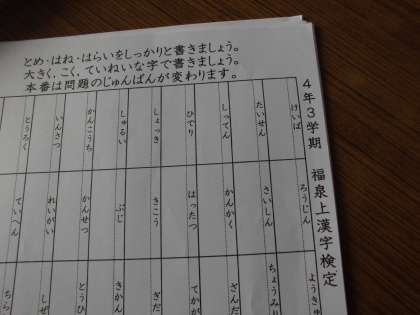 とめ・はね・はらいをしっかりと書きましょう。
大きく、こく、ていねいな字で書きましょう。
本番は問題のじゅんばんが変わります。
4年3学期　福泉上漢字検定
けいば
たいせん
しってん
ひでり
しょっき
しゅるい
かんこうち
いんさつ
とうろく
ろうじん
さいしん
かんかく
はったつ
きこう
ぶじ
かんせつ
れいがい
ていへん
ようきゅ
ちょうみり
ざんだ
てかが
ぎだ
きかん
とうひ
しぜ
ちら